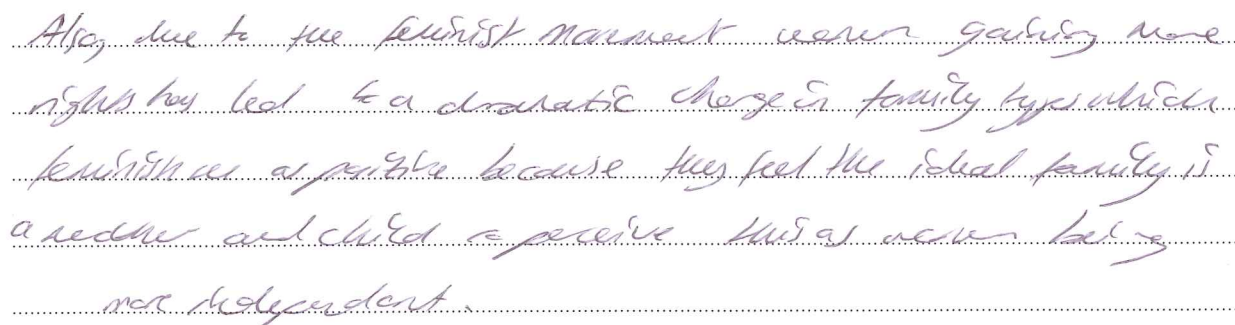 Also, due to the feminist movement women gaining more
rights has led to a dramatic change in family types which
feminist see as positive because they feel the ideal family is
a mother and child & perceive this as women being
more independant.